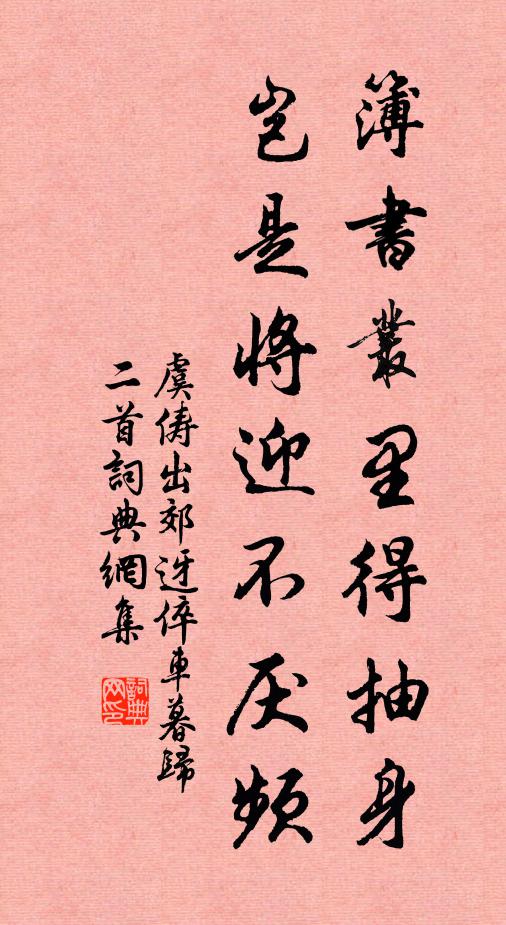 簿書叢里得抽身
豈是將迎不厌頻
虞儔出郊迓倅車暮歸
二首詞典網集
詞典网印